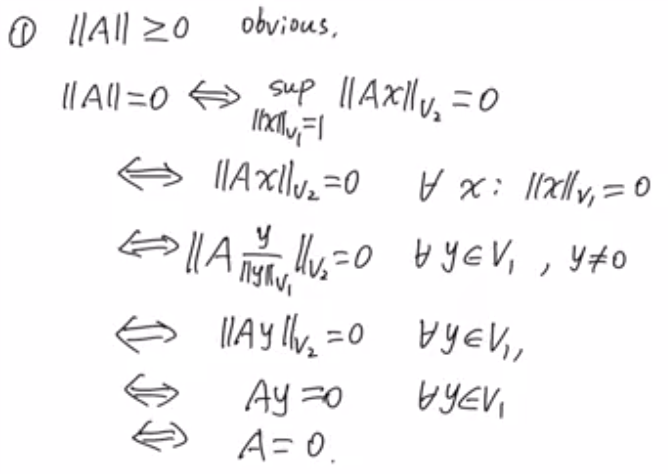 ① ||A|| ≥ 0 obvious.
||A||=0 ⟺ sup_{||x||_{V₁}=1} ||Ax||_{V₂} = 0
⟺ ||Ax||_{V₂}=0 ∀ x: ||x||_{V₁} = 0
⟺ ||A y/||y||_{V₁}||_{V₂}=0 ∀ y∈V₁, y≠0
⟺ ||Ay||_{V₂}=0 ∀y∈V₁,
⟺ Ay=0 ∀y∈V₁
⟺ A=0.